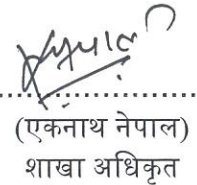 ....................
(एकनाथ नेपाल)
शाखा अधिकृत